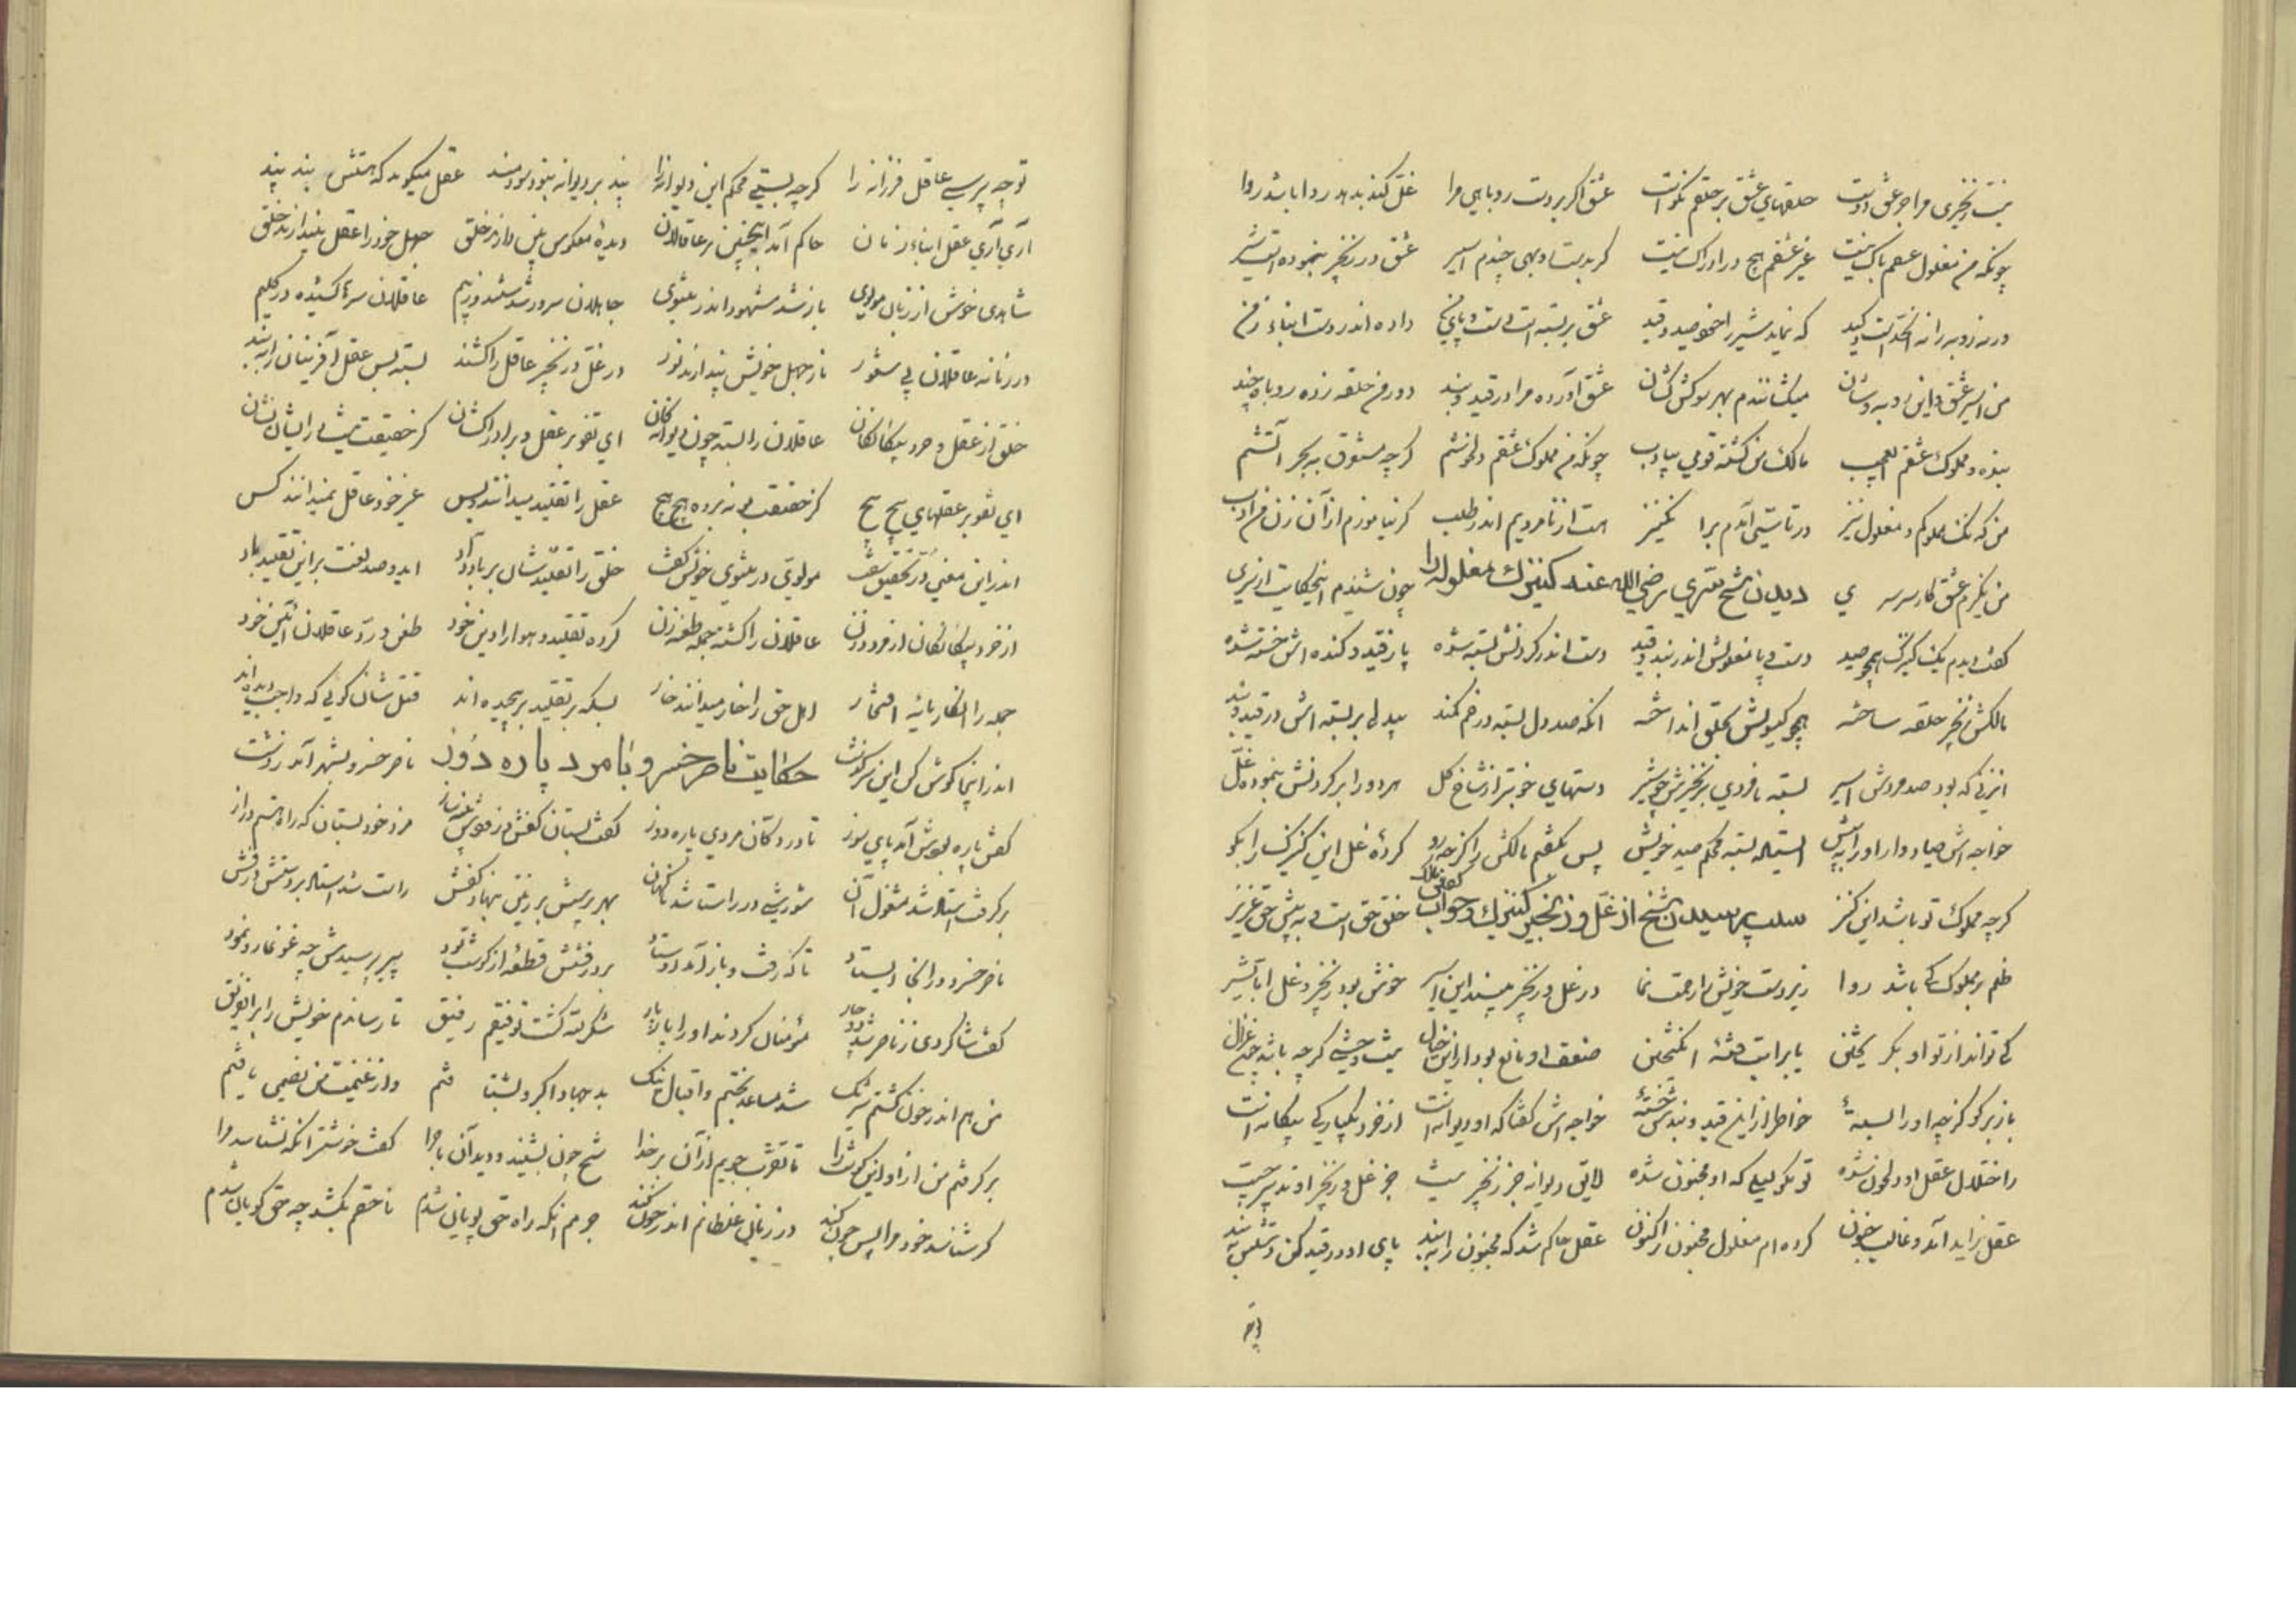 نیست زنجیری مرا جز عشق دوست حلقهای عشق بر حلقم نکوست عشق اگر بر دست روباهی مرا غل کند بدهد ردا باشد روا
چونکه من مغلول عشقم باک نیست غیر عشقم هیچ در ادراک نیست گر بدست روبهی چندم اسیر عشق در زنجیر بنموده است شیر
که نماید شیر را صید و قید عشق بر بسته است دست و پای من داده اندر دست ابناء زمن
من اسیر عشق و این روبه وشان میکشانندم بهر سو کش کشان عشق آورده مرا در قید و بند دور من حلقه زده روباه چند
بنده و مملوک عشقم العجب مالک من گشته قومی بی ادب چونکه من مملوک عشقم دلخوشم گرچه معشوقه به بحر آتشم
من که نک مملوکم و مغلول نیز در تاسی آمدم برا کنیز هست از نامردیم اندر طلب گر نیاموزم از آن زن من ادب
من نگیرم عشق کار سرسری دیدن شیخ سری رضی الله عنه کنیزک مغلوله را چون شنیدم اینحکایت از سری
گفت دیدم یک کنیزک همچو صید دست و پا مغلولش اندر بند و قید دست اندر گردنش بسته شده پا ز قید و کنده اش خسته شده
مالکش زنجیر حلقه ساخته همچو گیسویش بحلق انداخته آنکه صد دل بسته در خم کمند بیدلی بر بسته اش در قید و بند
آنزنی که بود صد مردش اسیر بسته نامردی بزنجیرش چو شیر دستهای خوبتر از شاخ گل هر دو را بر گردنش بنموده غل
خواجه اش صیاد وار او را به پیش ایستاده بسته محکم صید خویش پس بگفتم مالکش را کز چه رو کردهٔ غل این کنیزک را بگو
گرچه مملوک تو باشد این کنیز سبب پرسیدن شیخ از غل و زنجیر کنیزک و جواب گفتن مالک خلق حق است و به پیش حق عزیز
ظلم بر مملوک کی باشد روا زیر دست خویش را رحمت نما در غل و زنجیر مپسند این اسیر خوش بود زنجیر و غل اما بشیر
کی تواند از تو او بگریختن یا برایت فتنهٔ انگیختن ضعف او مانع بود از این خیال نیست وحشی گرچه باشد چون غزال
باز بر گو کز چه او را بستهٔ خاطر از این قید و بندش خستهٔ خواجه اش گفتا که او دیوانه است از خرد یکبارگی بیگانه است
ز اختلال عقل او دلخون شده تو نگو لیلی که او مجنون شده لایق دیوانه جز زنجیر نیست جز غل و زنجیر او تدبیر چیست
عقل زاید آمد و غالب جنون کرده ام مغلول مجنون را کنون عقل حاکم شد که مجنون را ببند پای او در قید کن دستش ببند
تو چه پرسی عاقل فرزانه را گرچه بستی محکم این دیوانه را پند بر دیوانه نبود سودمند عقل میگوید که هستش پند بند
آری آری عقل ابناء زمان حاکم آمد اینچنین بر عاقلان دیدهٔ معکوس بین دارند خلق جهل خود را عقل پندارند خلق
شاهدی خوش از زبان مولوی باز شد مشهود اندر مثنوی جاهلان سرور شدستند و ز بیم عاقلان سرها کشیده در گلیم
در زمانه عاقلان بی شعور ناز جهل خویش پندارند نور در غل و زنجیر عاقل را کشند بسته پس عقل آفرینان را ببند
خلق از عقل و خرد بیگانگان عاقلان را بسته چون دیوانگان ای تفو بر عقل و بر ادراکشان کز حقیقت نیست در ایشان نشان
ای تفو بر عقلهای پیچ پیچ کز حقیقت پی نبرده هیچ هیچ عقل را تقلید میدانند و بس غیر خود عاقل نمیدانند کس
اندر این معنی در تحقیق سفت مولوی در مثنوی خویش گفت خلق را تقلیدشان بر باد داد ای دو صد لعنت بر این تقلید باد
از خرد بیگانگان از مرد و زن عاقلان را گشته جمله طعنه زن کرده تقلید و هوا را دین خود طعن و رد عاقلان آئین خود
جمله را انکار مایهٔ افتخار اهل حق را خار میدانند خار بسکه بر تقلید بر پیچیده اند قتل شان گوئی که واجب دیده اند
اندر اینجا گوش کن این سرگذشت حکایت ناصر خسرو با مرد پاره دوز ناصر خسرو بشهر آمد ز دشت
کفش پاره بودش آمد پای سوز تا در دکان مردی پاره دوز گفت بستان کفش و زو مزد خود بستان که راهستم دراز
بر گرفت استاد شد مشغول آن شورشی در راست شد ناگهان بهر بر زمین بنهاد کفش راست شد استاد
ناصر خسرو در آنجا ایستاد تا که رفت و باز آمد اوستاد بر درفشش قطعهٔ از گوشت بود پیر پرسیدش چه غوغا رو نمود
گفت شاگردی ز ناصر شد دچار مؤمنان کردند او را پاره پار شکر لله گشت توفیقم رفیق تا رساندم خویش را بر آن فریق
من هم اندر خون گشتم شریک شد مساعد بختم و اقبال نیک بد جهاد اکبر و بشتافتم و از غنیمت من نصیبی یافتم
بر گرفتم من از او این گوشت را تا تقرب جویم از آن بر خدا شیخ چون بشنید و دید آن ماجرا گفت خوشتر آنکه نشناسد مرا
گر شناسد خود مرا پس چون کند در زمانی غلطانم اندر خون کند جرمم اینکه راه حق پویان شدم ناحقم بکشد چه حق گویان شدم